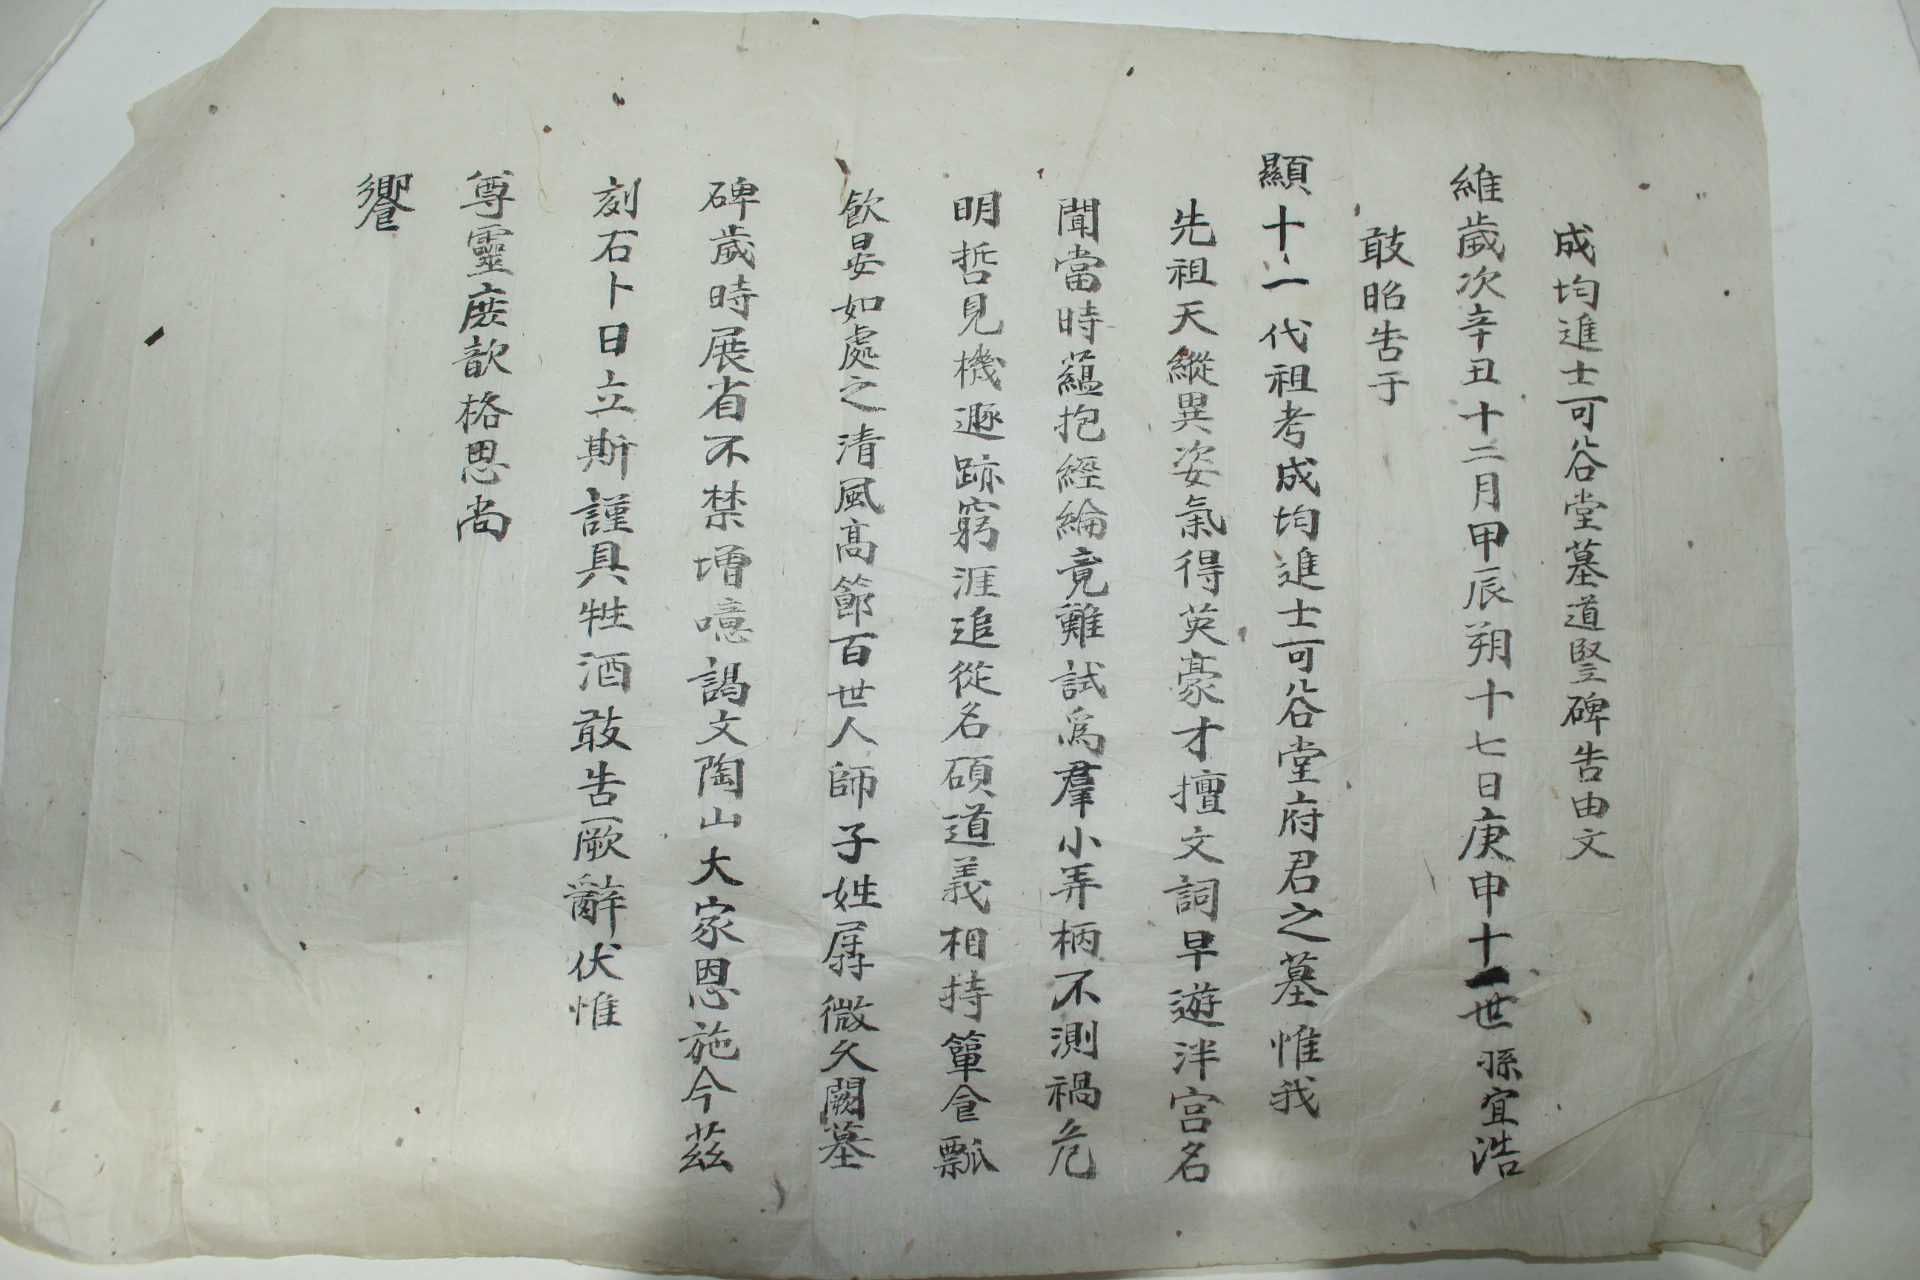 成均進士可谷堂墓道竪碑告由文
維歲次辛丑十二月甲辰朔十七日庚申十一世孫宜浩
敢昭告于
顯十一代祖考成均進士可谷堂府君之墓惟我
先祖天縱異姿氣得英豪才擅文詞早遊泮宮名
聞當時蘊抱經綸竟難試爲羣小弄柄不測禍危
明哲見機遯跡窮涯追從名碩道義相持簞食瓢
飮晏如處之清風高節百世人師子姓孱微久闕墓
碑歲時展省不禁增噫謁文陶山大家恩施今玆
刻石卜日立斯謹具牲酒敢告厥辭伏惟
尊靈庶歆格思尙
饗